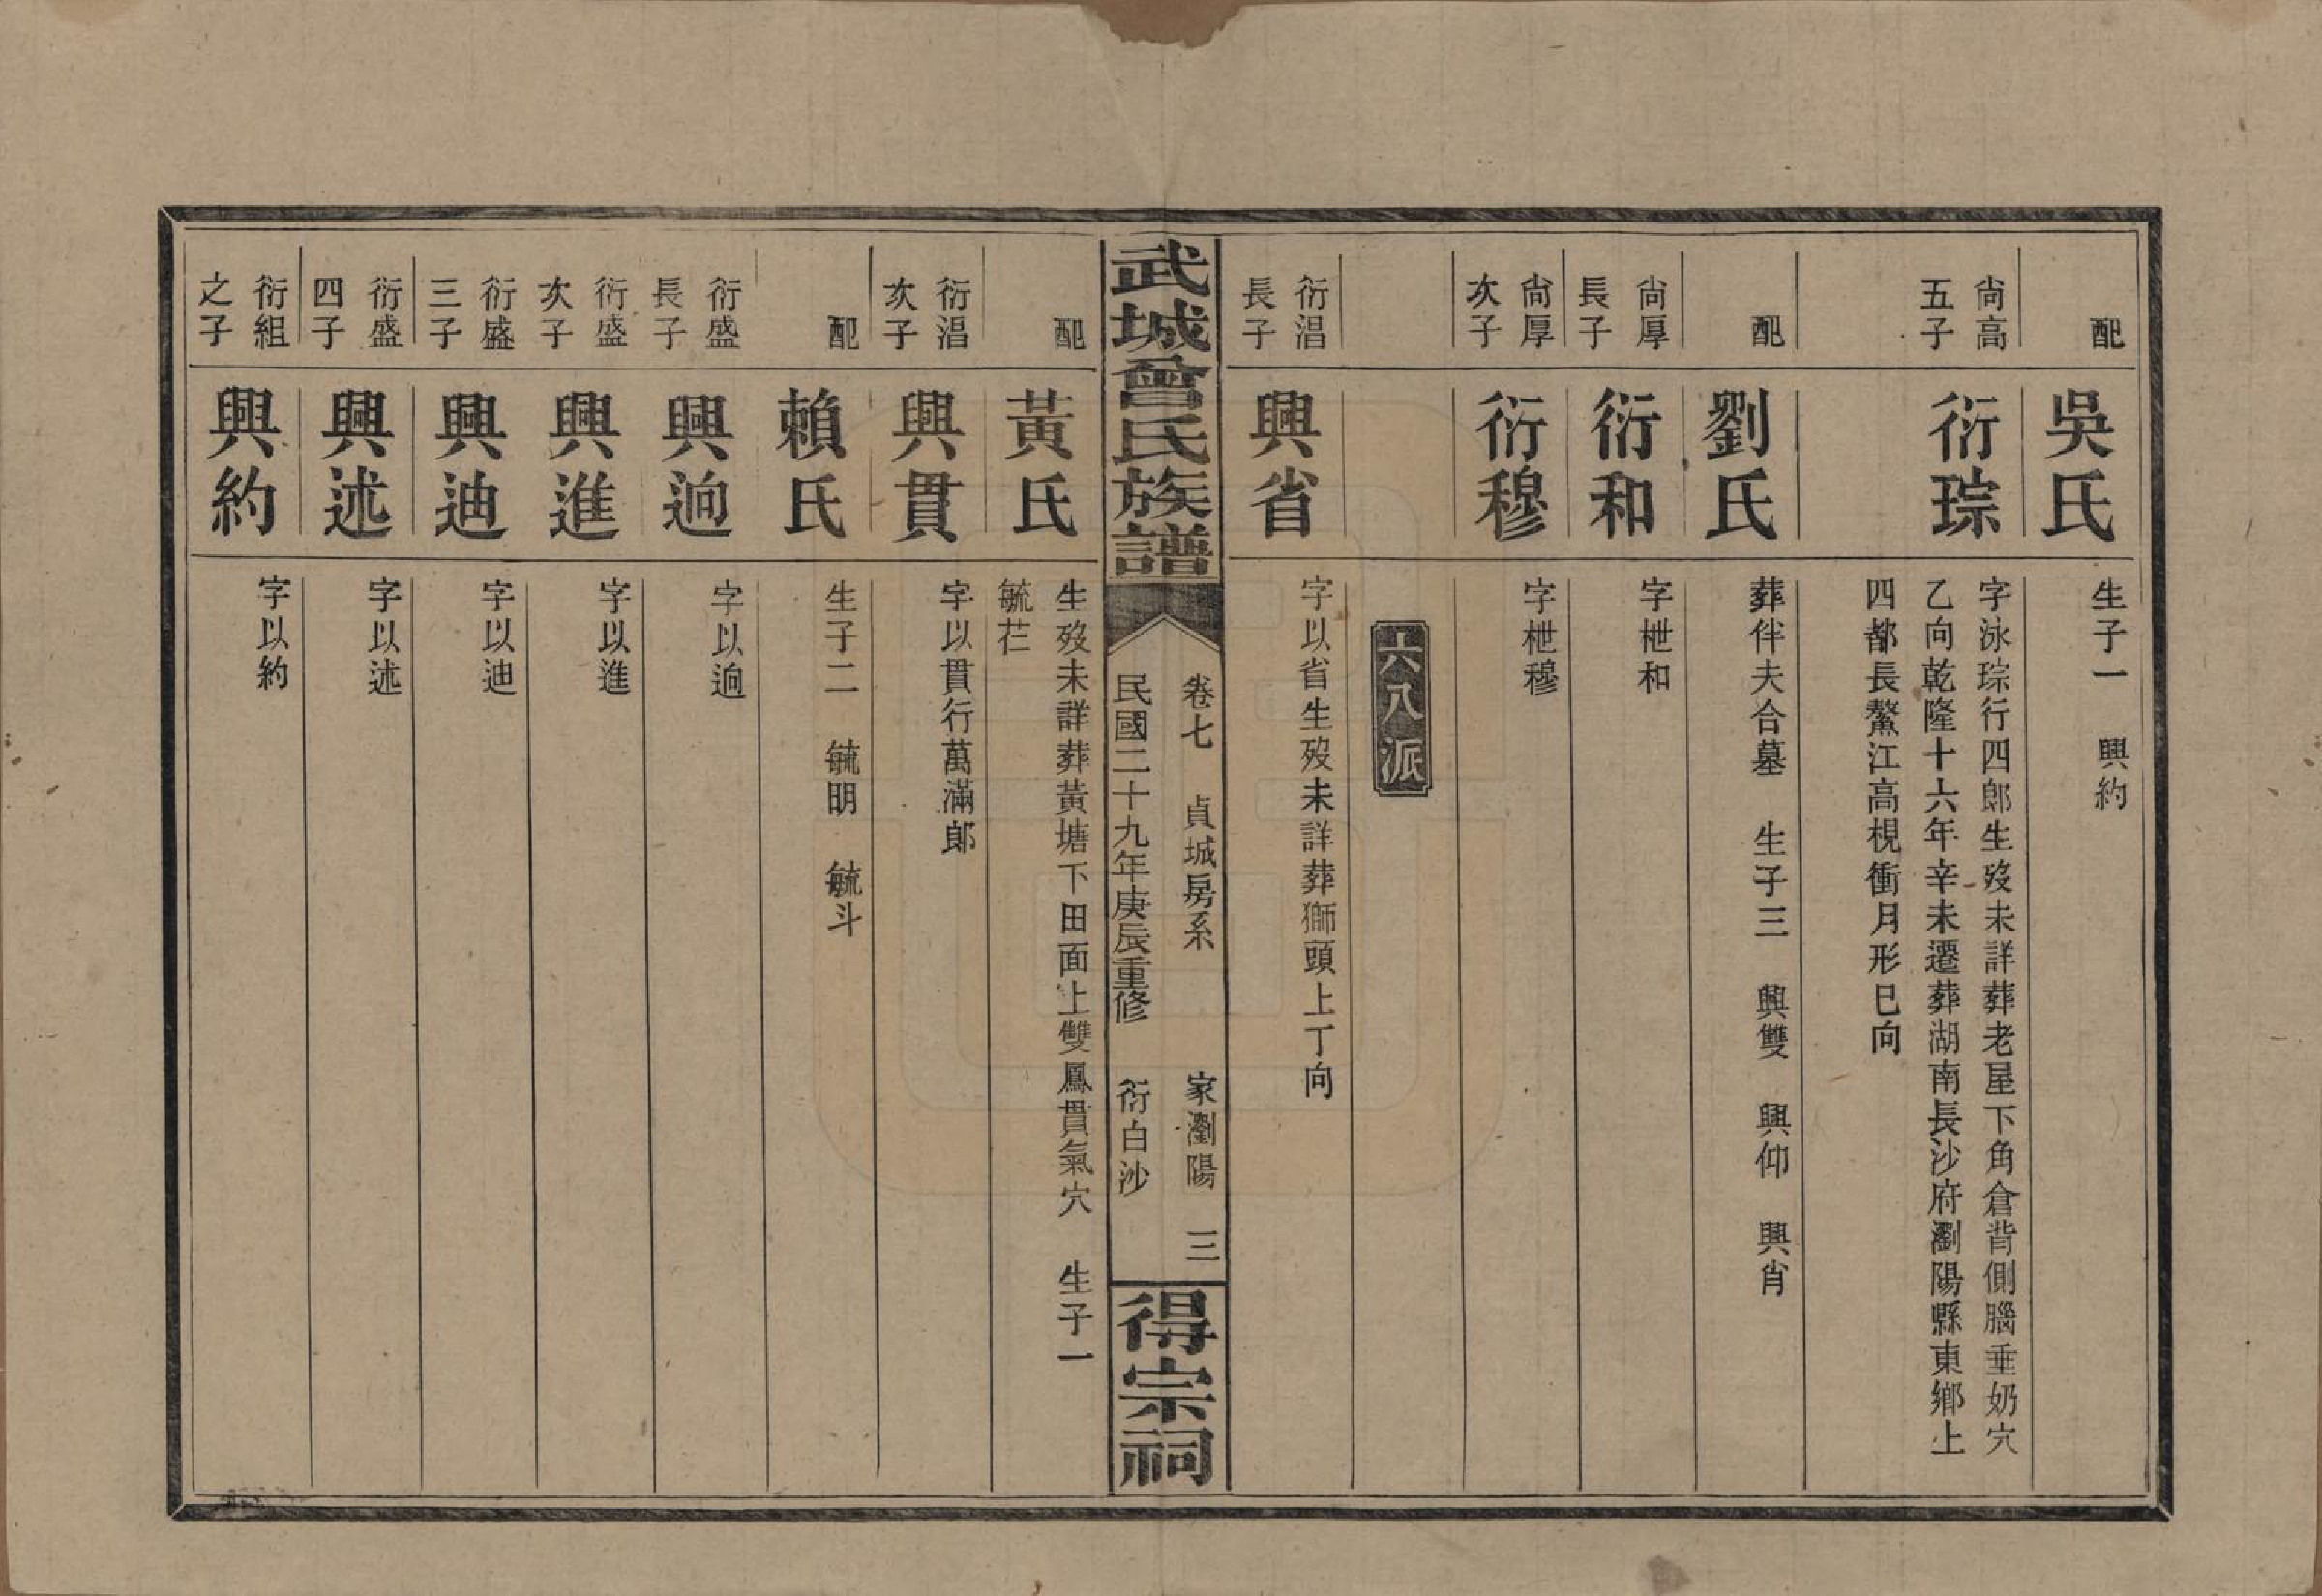 配
吳氏
生子一　興約
尙高
五子
衍琮
字泳琮行四郎生歿未詳葬老屋下角倉背側腦垂奶穴
乙向乾隆十六年辛未遷葬湖南長沙府瀏陽縣東鄉上
四都長鰲江高梘衝月形巳向
配
劉氏
葬伴夫合墓　生子三　興雙　興仰　興肖
尙厚
長子
衍和
字枻和
尙厚
次子
衍穆
字枻穆
六八派
衍淐
長子
興省
字以省生歿未詳葬獅頭上丁向
武城曾氏族譜
卷七　貞城房系　家瀏陽　三
民國二十九年庚辰重修　衍白沙
得宗祠
配
黃氏
生歿未詳葬黃塘下田面上雙鳳貫氣穴　生子一
毓芒
衍淐
次子
興貫
字以貫行萬滿郎
配
賴氏
生子二　毓明　毓斗
衍盛
長子
興逈
字以逈
衍盛
次子
興進
字以進
衍盛
三子
興迪
字以迪
衍盛
四子
興述
字以述
衍組
之子
興約
字以約